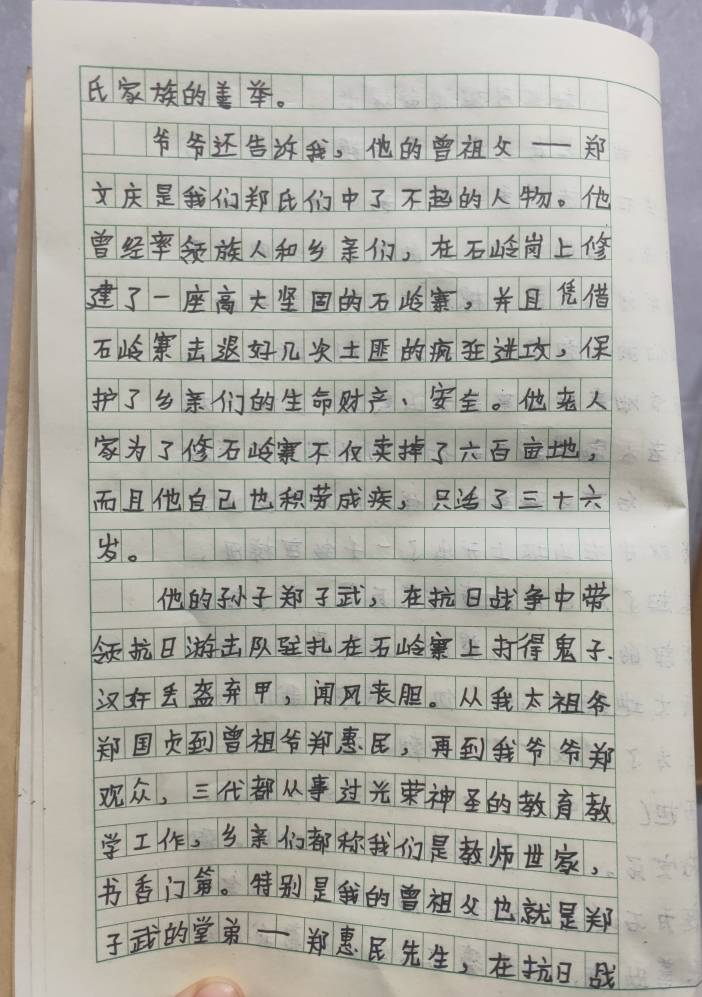 氏家族的善举。
爷爷还告诉我，他的曾祖父——郑
文庆是我们郑氏们中了不起的人物。他
曾经率领族人和乡亲们，在石岭岗上修
建了一座高大坚固的石岭寨，并且凭借
石岭寨击退好几次土匪的疯狂进攻，保
护了乡亲们的生命财产、安全。他老人
家为了修石岭寨不仅卖掉了六百亩地，
而且他自己也积劳成疾，只活了三十六
岁。
他的孙子郑子武，在抗日战争中带
领抗日游击队驻扎在石岭寨上打得鬼子、
汉奸丢盔弃甲，闻风丧胆。从我太祖爷
郑国贞到曾祖爷郑惠民，再到我爷爷郑
观众，三代都从事过光荣神圣的教育教
学工作，乡亲们都称我们是教师世家，
书香门第。特别是我的曾祖父也就是郑
子武的堂弟——郑惠民先生，在抗日战